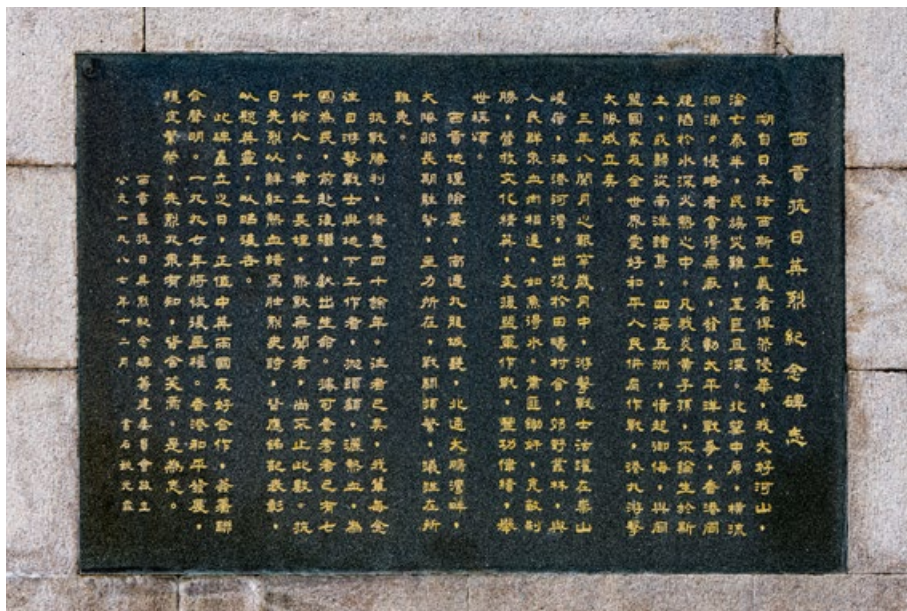 西貢抗日英烈紀念碑志
溯自日本法西斯主義者悍然侵華，我大好河山，
淪亡泰半，民族災難，至巨且深。北望中原，橫流
泗涕。侵略者貪得無厭，發動太平洋戰爭，香港同
胞陷於水深火熱之中。凡我炎黃子孫，不論生於斯
土，或歸從南洋諸島，四海五洲，憤起御侮，與同
盟國家及全世界愛好和平人民併肩作戰，港九游擊
大隊成立矣。
三年八閱月之艱苦歲月中，游擊戰士活躍在崇山
峻嶺，海港河灣，出沒於田疇村舍，郊野叢林，與
人民群眾血肉相連，如魚得水。肅匪鋤奸，克敵制
勝，營救文化精英，支援盟軍作戰，豐功偉績，舉
世稱頌。
西貢地理險要，南連九龍城寨，北通大鵬灣畔，
大隊部長期駐營，主力所在，戰鬥頻繁，犧牲在所
難免。
抗戰勝利，倏忽四十餘年。逝者已矣，我輩每念
往日游擊戰士與地下工作者，拋頭顱，灑熱血，為
國為民，前赴後繼，獻出生命。可查考者已有七
十餘人。黃土長埋，默默無聞者，尚不止此數。抗
日先烈以鮮紅熱血譜寫壯烈史詩，皆應銘記表彰，
以慰英靈，以昭後者。
此碑矗立之日，正值中英兩國友好合作，簽署聯
合聲明。一九九七年將恢復主權。香港和平發展，
穩定繁榮，先烈九泉有知，皆含笑焉，是為志。
西貢區抗日英烈紀念碑籌建委員會敬立
公元一九八七年十二月 書石